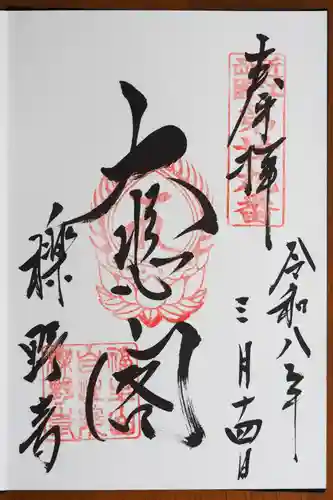 奉拝
令和八年
三月十四日
大悲閣
櫟野寺